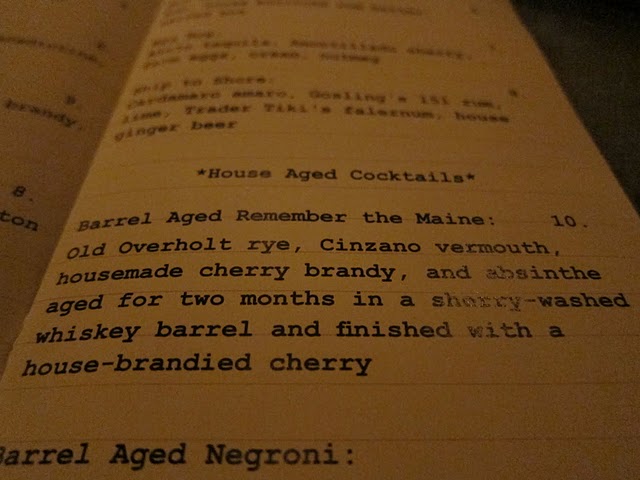 brandy,
9.
8.
ton
Ship to Shore:
Cardamaro amaro, Gosling's 151 rum,
lime, Trader Tiki's falernum, house
ginger beer
*House Aged Cocktails*
Barrel Aged Remember the Maine: 10.
Old Overholt rye, Cinzano vermouth,
housemade cherry brandy, and absinthe
aged for two months in a sherry-washed
whiskey barrel and finished with a
house-brandied cherry
Barrel Aged Negroni: